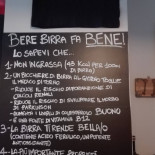 BERE BIRRA FA BENE!
LO SAPEVI CHE...
1- NON INGRASSA
DI BIRRA)
2- UN BICCHIERE DI BIRRA AL GIORNO TOGLIE
IL MEDICO DI TORNO
- RIDUCE IL RISCHIO DI FORMAZIONE DI
CALCOLI RENALI
- RIDUCE IL RISCHIO DI SVILUPPARE IL MORBO
DI PARKINSON
- AUMENTA I LIVELLI DI COLESTEROLO BUONO
- È UNA FONTE DI VITAMINA B12
3- LA BIRRA TI RENDE BELLA/O
CONTIENE ACIDO FERULICO (UN POTENTE
ANTIOSSIDANTE)
4- LA PIÙ IMPORTANTE